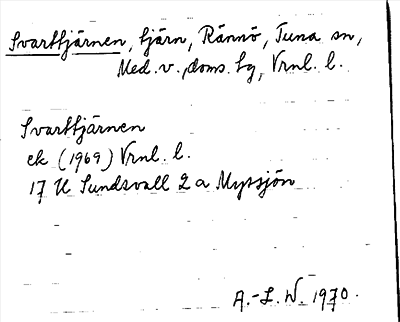 Svarttjärnen, tjärn, Rännö, Tuna sn,
Med. v., doms. tg, Vrnl. l.
Svarttjärnen
ek (1969) Vrnl. l.
17 H Sundsvall 2 a Myssjön
A.-L. W. 1970.